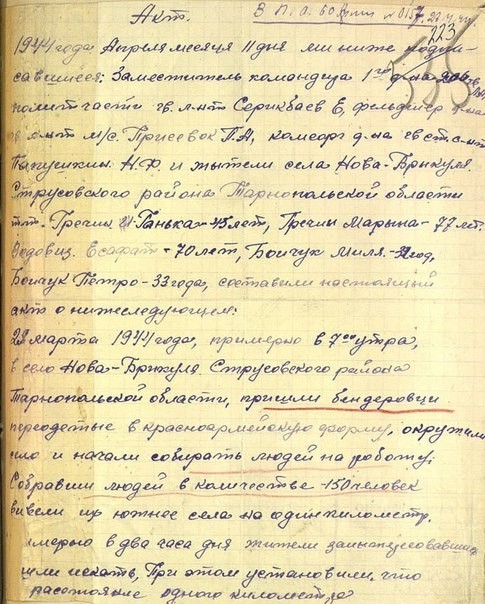 Акт.
В П.О. 60 Армии № 0157. 29.4.44
223
1944 года Апреля месяца 11 дня мы ниже подпи-
савшиеся: Заместитель командира 1го
политчасти гв. л-нт Серикбаев Е, фельдшер
л-нт м/с. Присевок П.А, комсорг д-на гв ст. с-нт
Н.Ф. и жители села Нова-Брикуля.
Струсовского района Тарнопольской области
т.т. Гречин Ганька-45 лет, Гречин Марына-77 лет.
Есафат-70 лет, Бойчук Миля-32 год,
Бойчук Петро-33 года, составили настоящий
акт о нижеследующем:
22 марта 1944 года, примерно в 7 00 утра,
в село Нова-Брикуля Струсовского района
Тарнопольской области, пришли бендеровци
переодетые в красноармейскую форму, окружили
ело и начали собирать людей на работу.
Собравши людей в количестве-150 человек
вывели их южнее села на один километр.
имерно в два часа дня жители заинтересовавшись
шли искать, При этом установили, что
расстояние одного километра